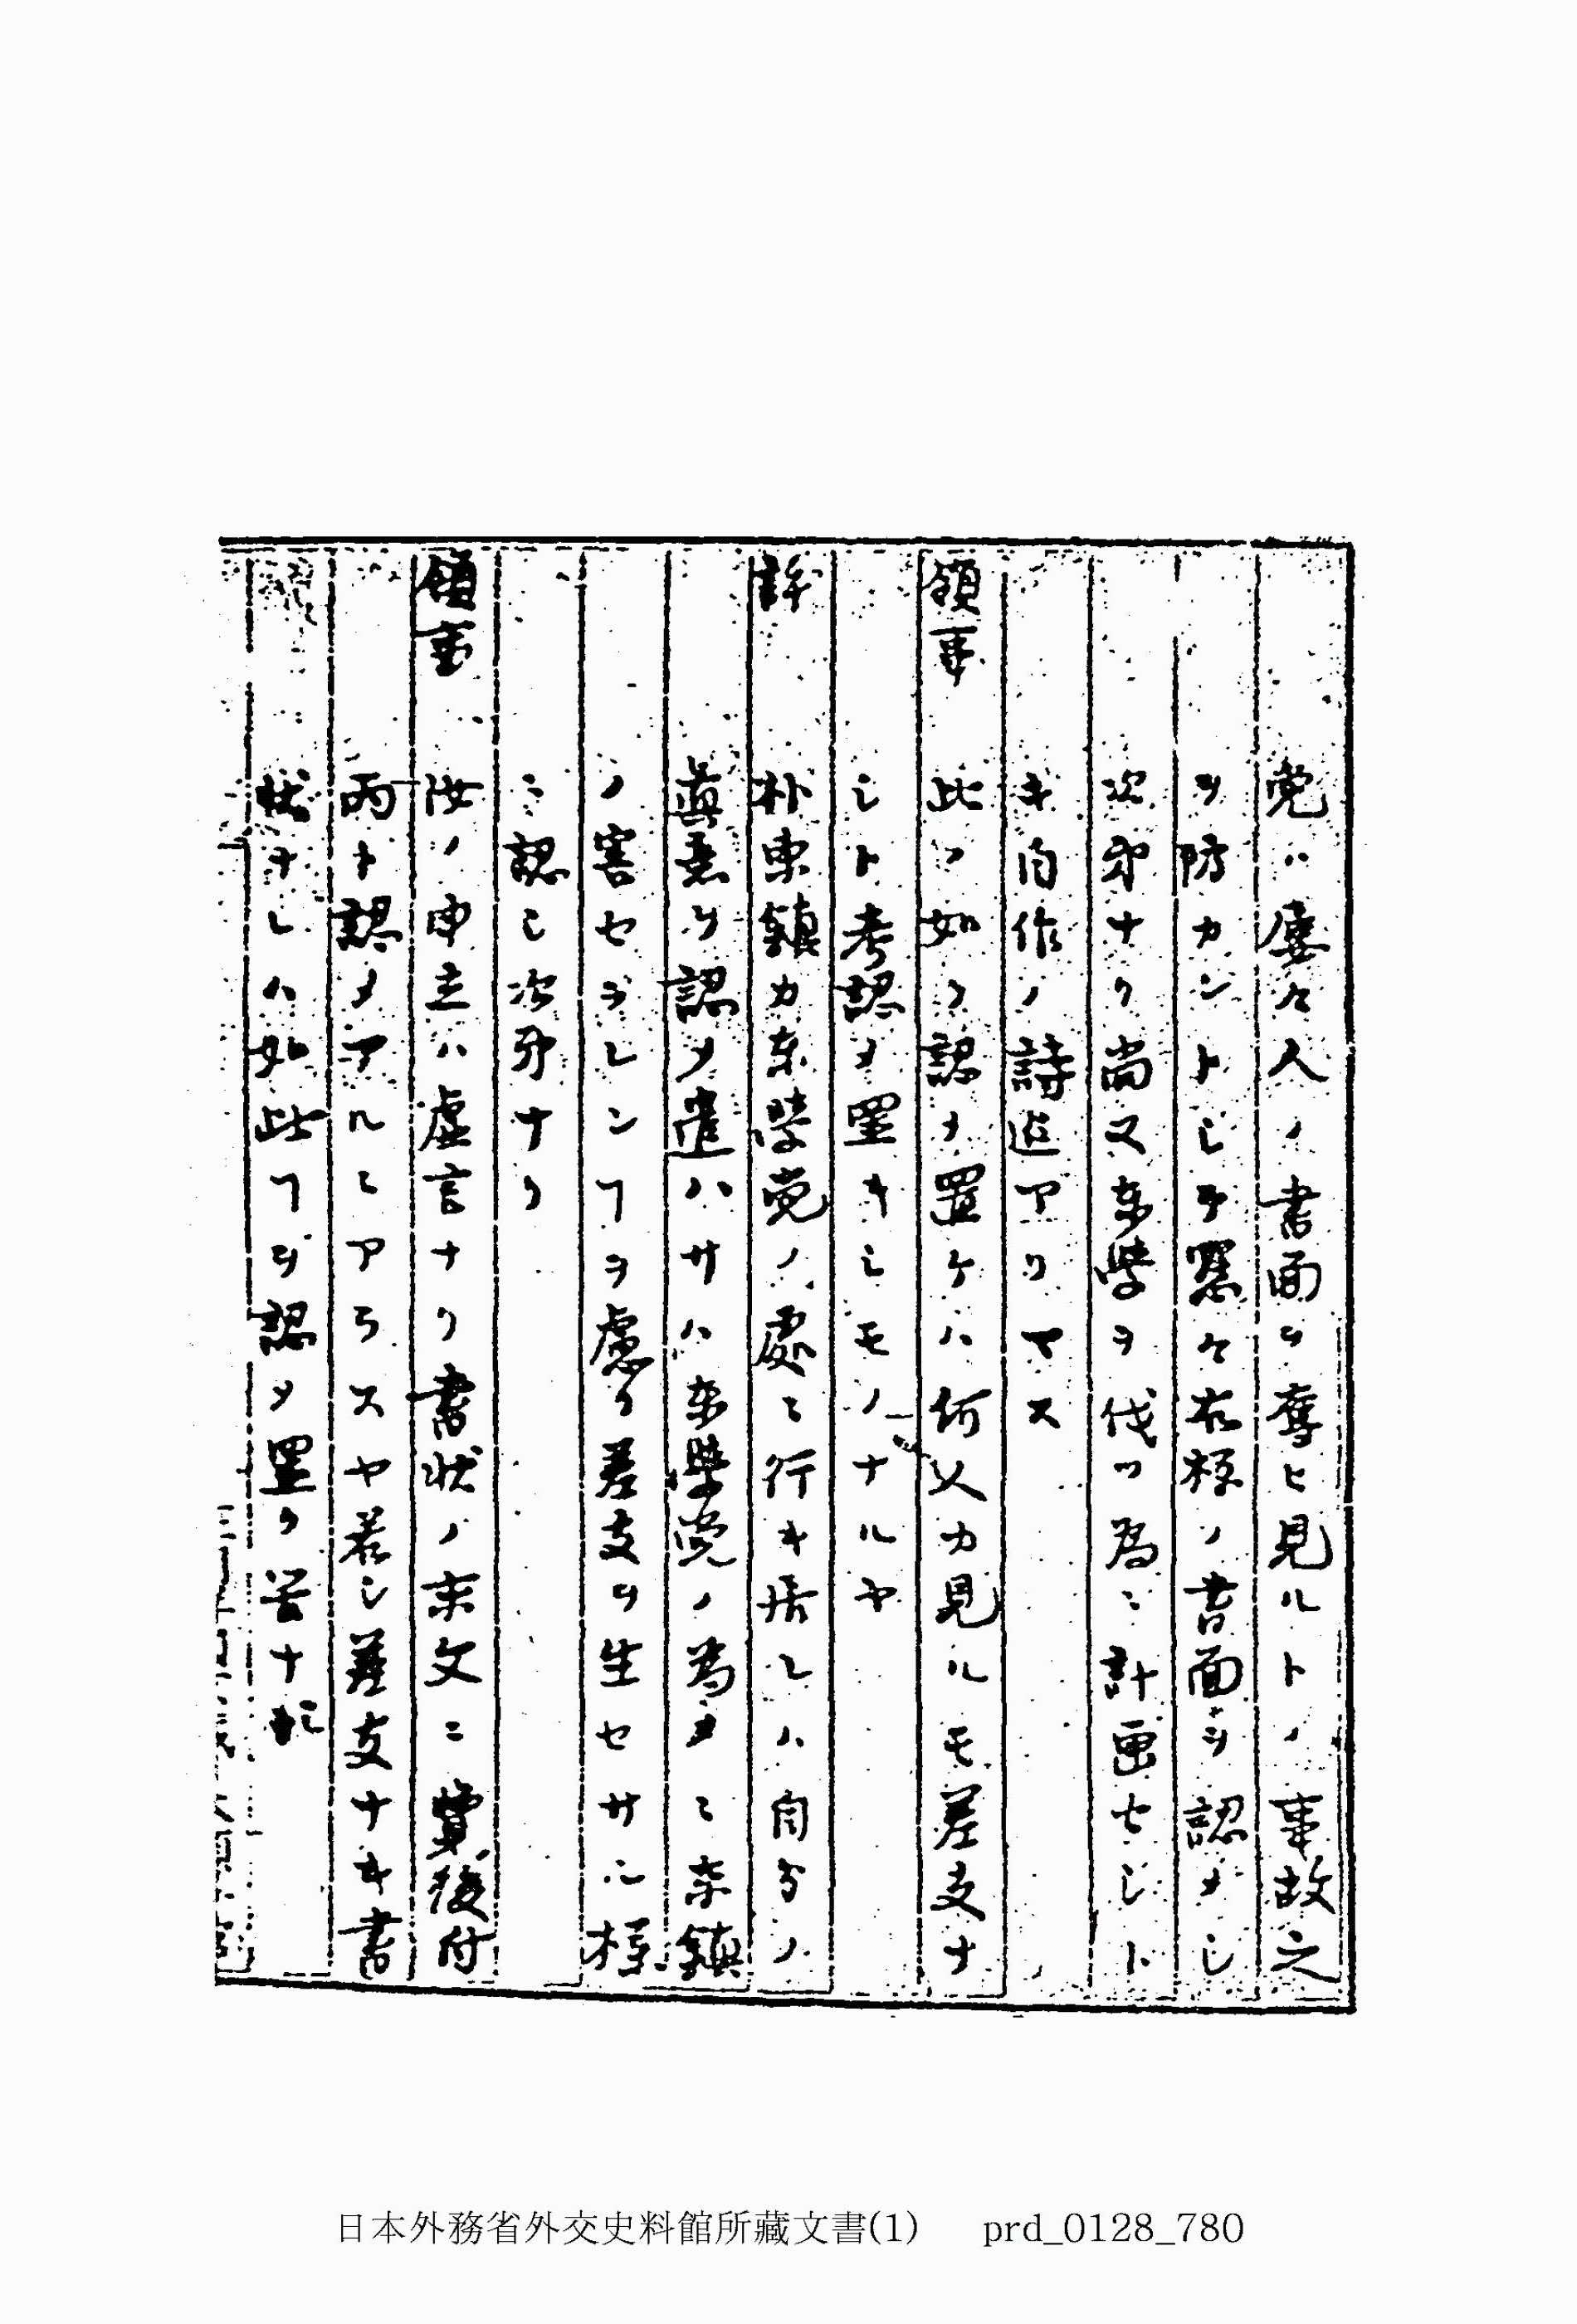 党ハ屢々人ノ書面ヲ奪ヒ見ルトノ事故之
ヲ防カントシテ窓々右様ノ書面ヲ認メシ
次第ナリ尚又東学ヲ伐ツ為ニ計画セシト
キ自作ノ詩迄アリマス
領事 此ノ如ク認メ置ケハ何人カ見ルモ差支ナ
シト考認メ置キシモノナルヤ
許 朴東鎮カ東学党ノ処ニ行キ居レハ自分ノ
真意ヲ認メ遣ハサハ東学党ノ為メニ東鎮
ノ害セラレンヿヲ慮リ差支ヲ生セサル様
ニ認シ次第ナリ
領事 汝ノ申立ハ虚言ナリ書状ノ末文ニ覽後付
丙ト認メアルニアラスヤ若シ差支ナキ書
状ナレハ如此ヿヲ認メ置ク筈ナ
日本外務省外交史料館所藏文書(1) prd_0128_780